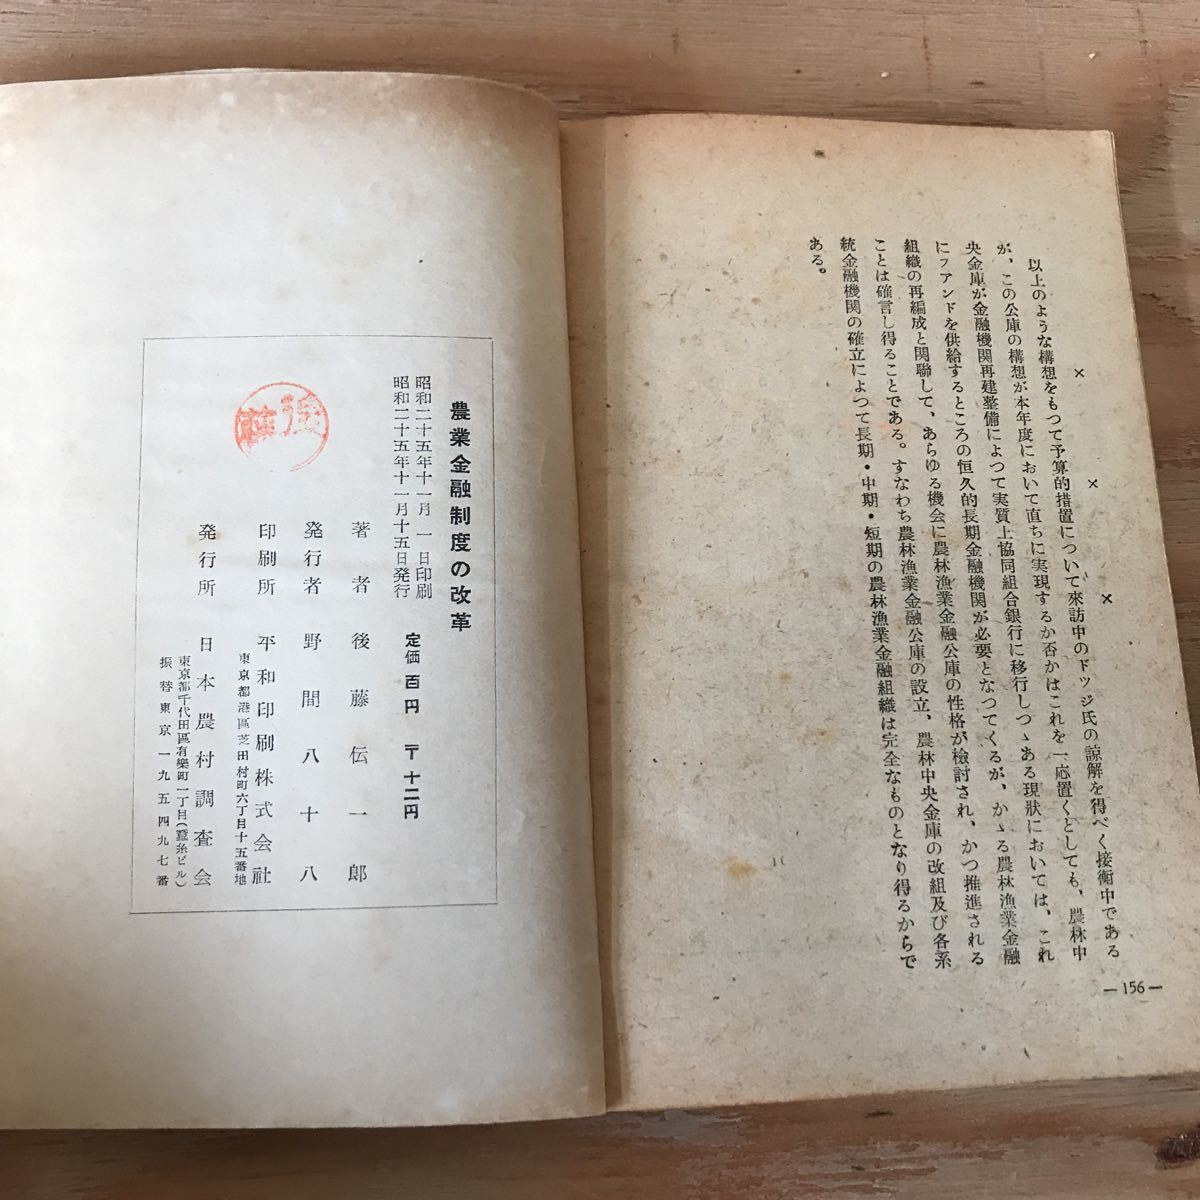 × × ×
以上のような構想をもつて予算的措置について來訪中のドツジ氏の諒解を得べく接衝中である
が、この公庫の構想が本年度において直ちに実現するか否かはこれを一応置くとしても、農林中
央金庫が金融機関再建整備によつて実質上協同組合銀行に移行しつゝある現狀においては、これ
にフアンドを供給するところの恒久的長期金融機関が必要となつてくるが、かゝる農林漁業金融
組織の再編成と関聯して、あらゆる機会に農林漁業金融公庫の性格が檢討され、かつ推進される
ことは確言し得ることである。すなわち農林漁業金融公庫の設立、農林中央金庫の改組及び各系
統金融機関の確立によつて長期・中期・短期の農林漁業金融組織は完全なものとなり得るからで
ある。
— 156 —
農業金融制度の改革
昭和二十五年十一月 一日印刷
昭和二十五年十一月十五日発行
定価 百円 〒十二円
著者 後藤伝一郎
発行者 野間八十八
印刷所 平和印刷株式会社
東京都港區芝田村町六丁目十五番地
発行所 日本農村調査会
東京都千代田區有樂町一丁目(蚕糸ビル)
振替東京一九五四九七番
後藤